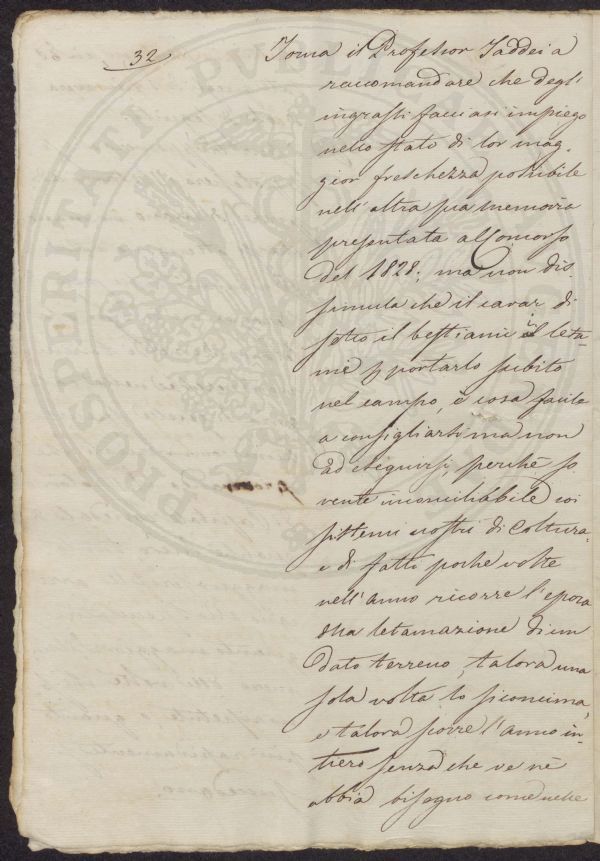 32
Torna il Professor Taddei a
raccomandare che degl'
ingrassi facciasi impiego
nello stato di lor mag-
gior freschezza possibile
nell'altra sua memoria
presentata al Concorso
del 1828; ma non dis-
simula che il cavar di
sotto il bestiame il leta-
me p portarlo subito
nel campo, è cosa facile
a consigliarsi ma non
ad eseguirsi, perchè so
vente inconciliabile coi
sistemi nostri di coltura,
e di fatti poche volte
nell'anno ricorre l'epoca
della letamazione di un
dato terreno, talora una
sola volta lo si concima,
e talora scorre l'anno in-
tiero senza che ve nè
abbia bisogno come nelle
PROSPERITATI PVBLICAE